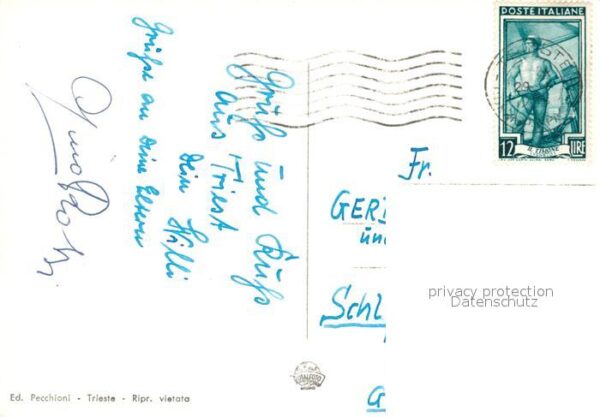 Gruß und Kuß
aus Triest
Dein Willi
Grüße an Deine Eltern
POSTE ITALIANE
12 LIRE
Fr.
GER
und
Schl
G
privacy protection
Datenschutz
Ed. Pecchioni - Trieste - Ripr. vietata